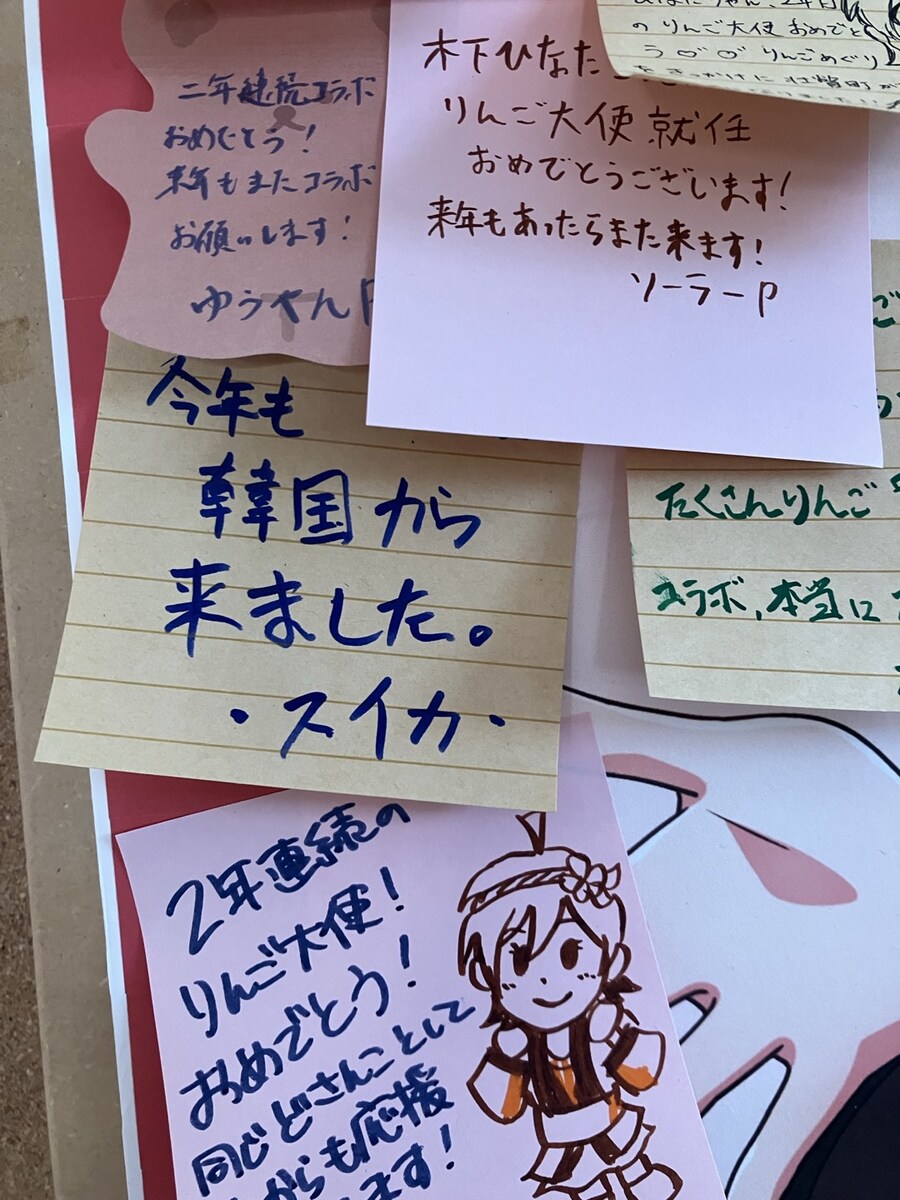 二年連続コラボ
おめでとう!
来年もまたコラボ
お願いします!
ゆうやんP
木下ひなた
りんご大使就任
おめでとうございます!
来年もあったらまた来ます!
ソーラーP
のりんご大使おめでと
りんごめぐり
今年も
韓国から
来ました。
・スイカ・
たくさんりんご
コラボ、本当に
2年連続の
りんご大使!
おめでとう!
同じどさんことして
からも応援
ます!